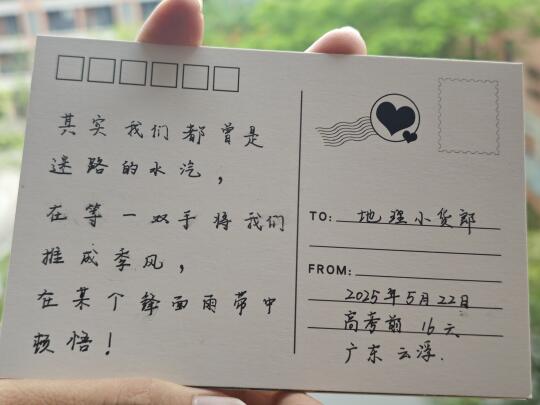 其实我们都曾是
迷路的水汽，
在等一双手将我们
推成季风，
在某个锋面雨带中
顿悟！
TO: 地理小货郎
FROM:
2025年5月22日
高考前16天
广东云浮.